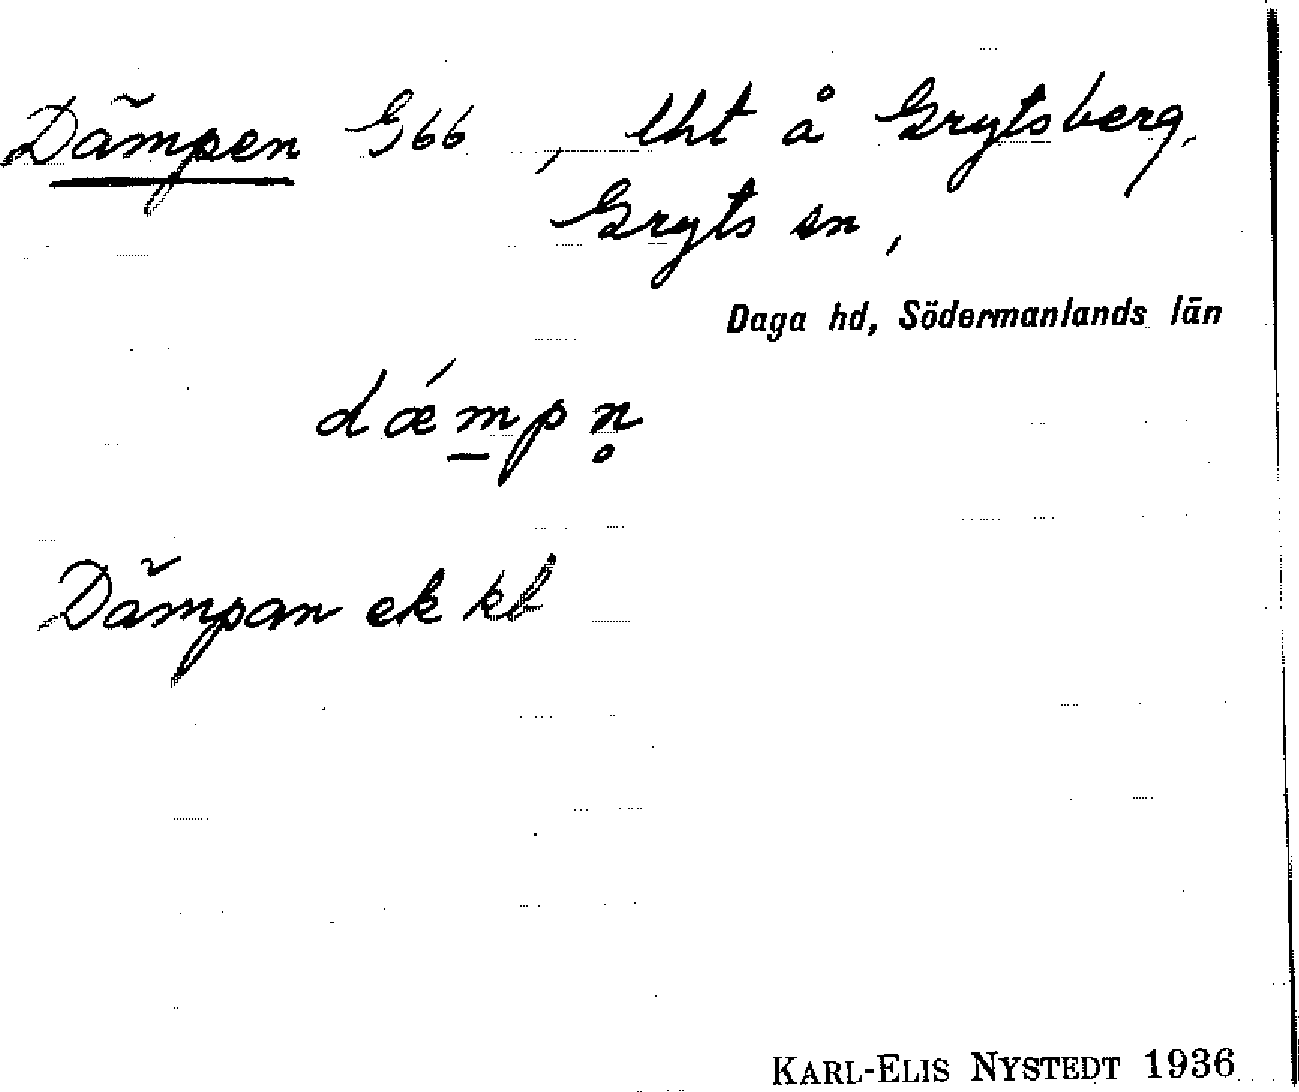 Dämpen G66, lht å Grytsberg,
Gryts sn,
Daga hd, Södermanlands län
dǽm̲pn̥
Dämpan ek kb
KARL-ELIS NYSTEDT 1936